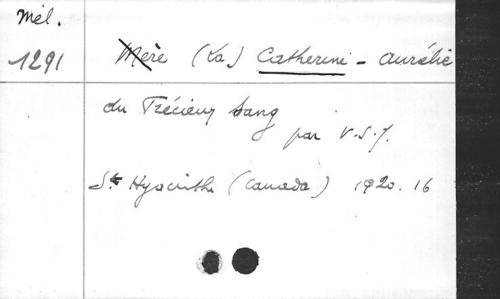 Mél.
1291
Mère (La) Catherine - Aurélie
du Précieux Sang
par V.S.J.
St Hyacinthe (Canada) 1920. 16